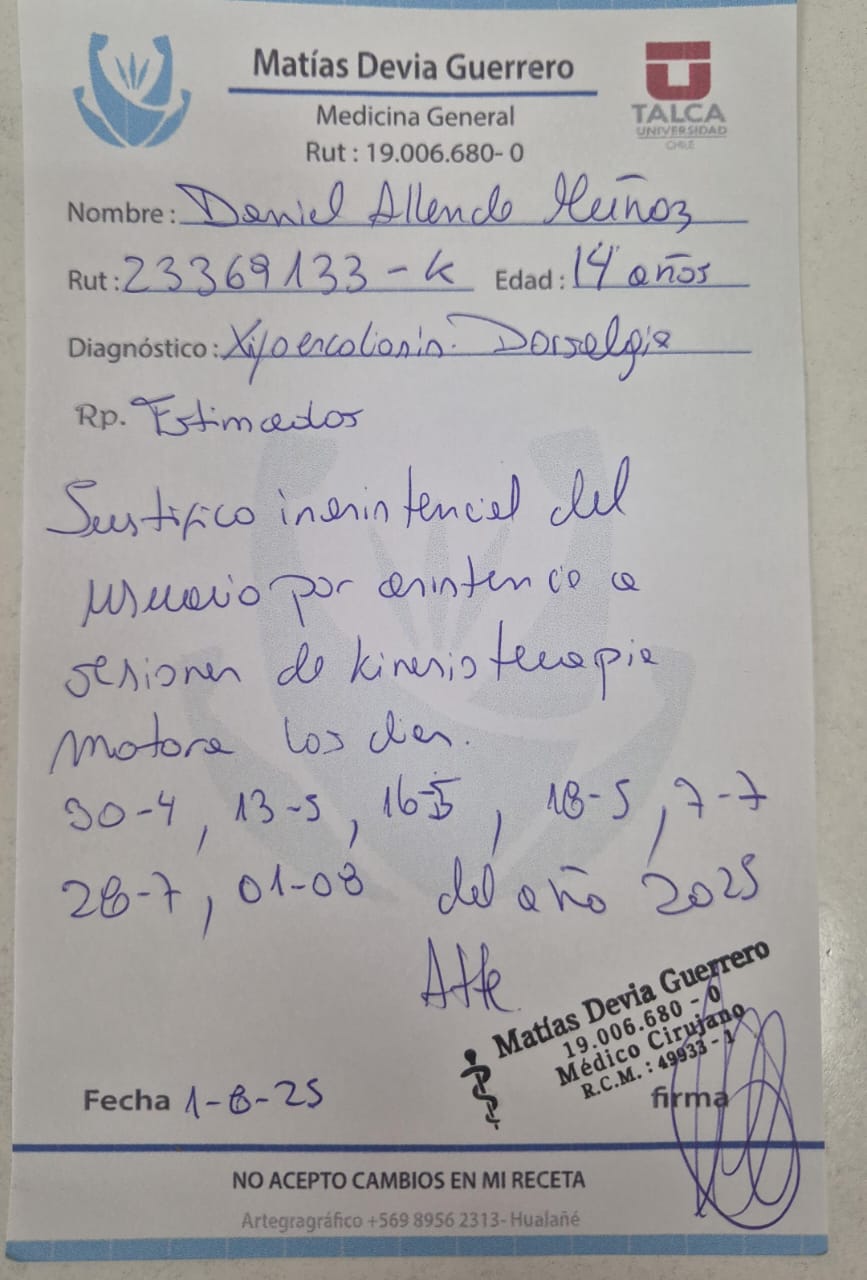 Matías Devia Guerrero
Medicina General
Rut : 19.006.680- 0
TALCA
UNIVERSIDAD
CHILE
Nombre : Daniel Allende Muñoz
Rut : 23369133-K Edad : 14 años
Diagnóstico : Xifoescoliosis. Dorsalgia
Rp. Estimados
Justifico inasistencial del
usuario por asistencia a
sesiones de kinesioterapia
motora los dias.
30-4, 13-5, 16-5, 18-5, 7-7
28-7, 01-08 del año 2025
Atte.
Matías Devia Guerrero
19.006.680 - 0
Médico Cirujano
R.C.M. : 49933 - 1
Fecha 1-8-25 firma
NO ACEPTO CAMBIOS EN MI RECETA
Artegragráfico +569 8956 2313- Hualañé